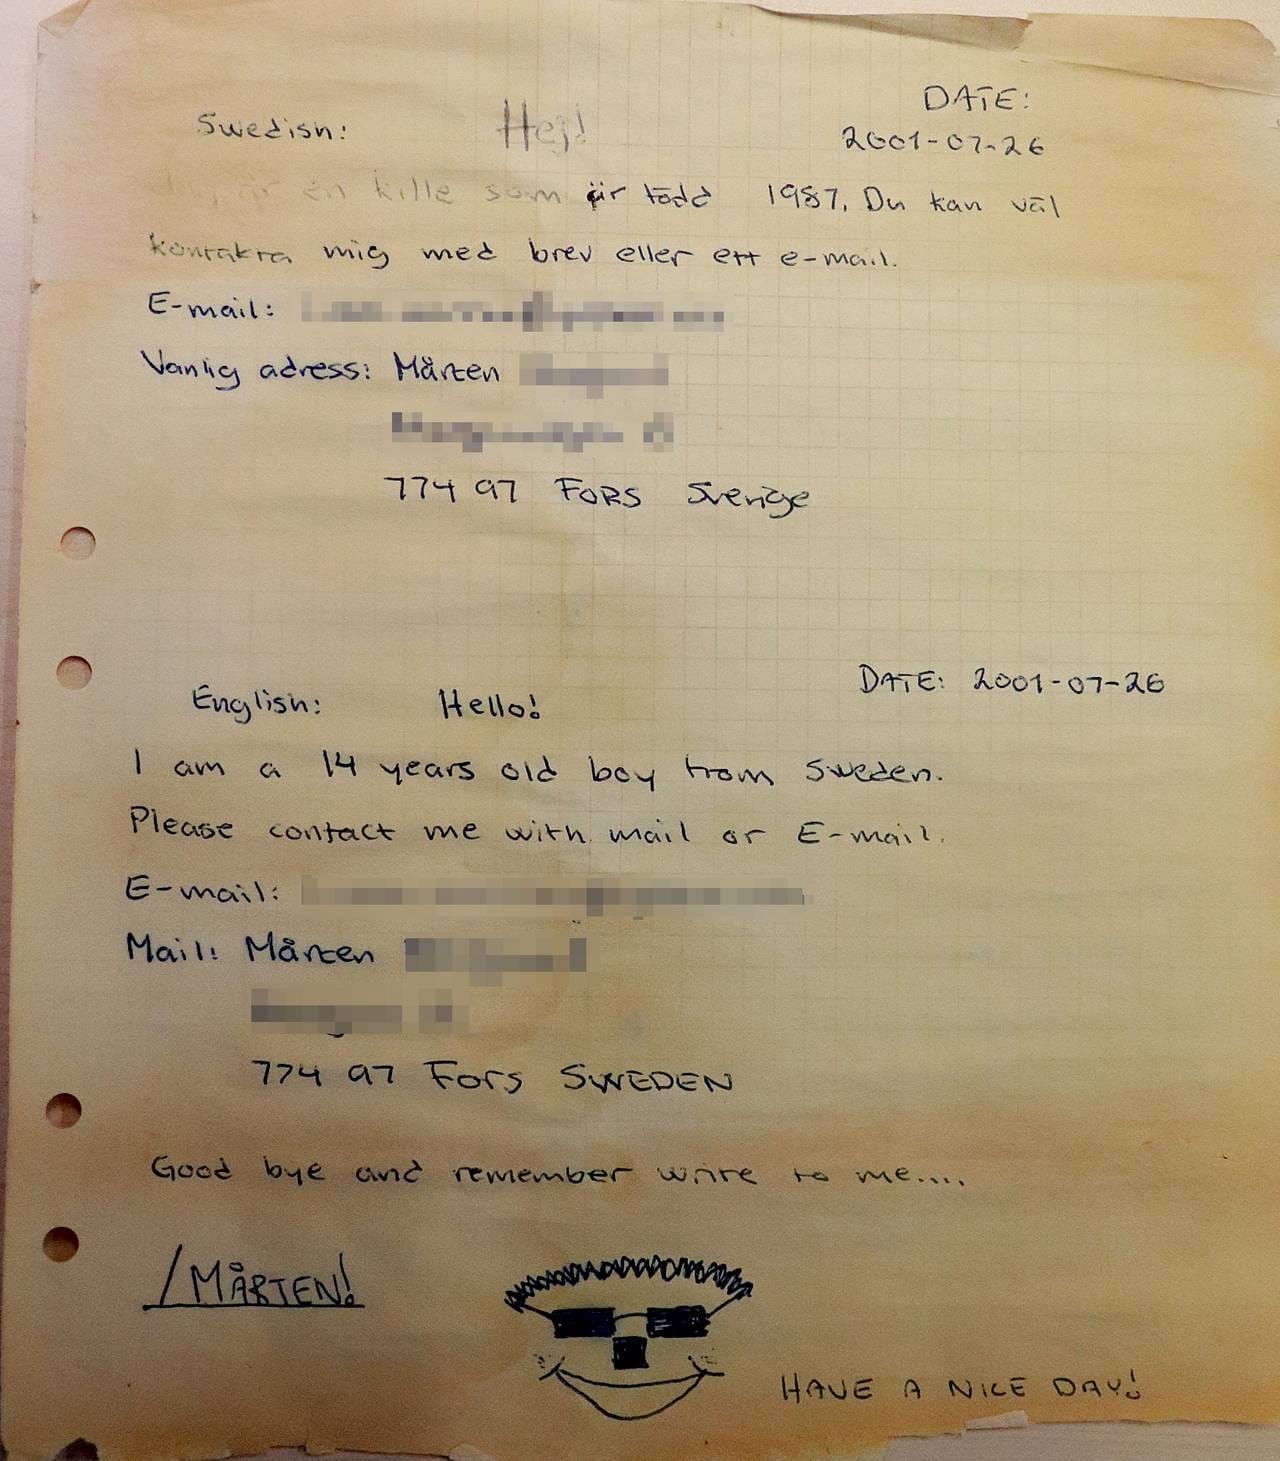 DATE:
Swedish: Hej!
2001-07-26
är en kille som är född 1987. Du kan väl
kontakta mig med brev eller ett e-mail.
E-mail:
Vanlig adress: Mårten
774 97 FORS Sverige
DATE: 2001-07-26
English: Hello!
I am a 14 years old boy from Sweden.
Please contact me with mail or E-mail.
E-mail:
Mail: Mårten
774 97 Fors SWEDEN
Good bye and remember write to me....
/MÅRTEN!
HAVE A NICE DAY!